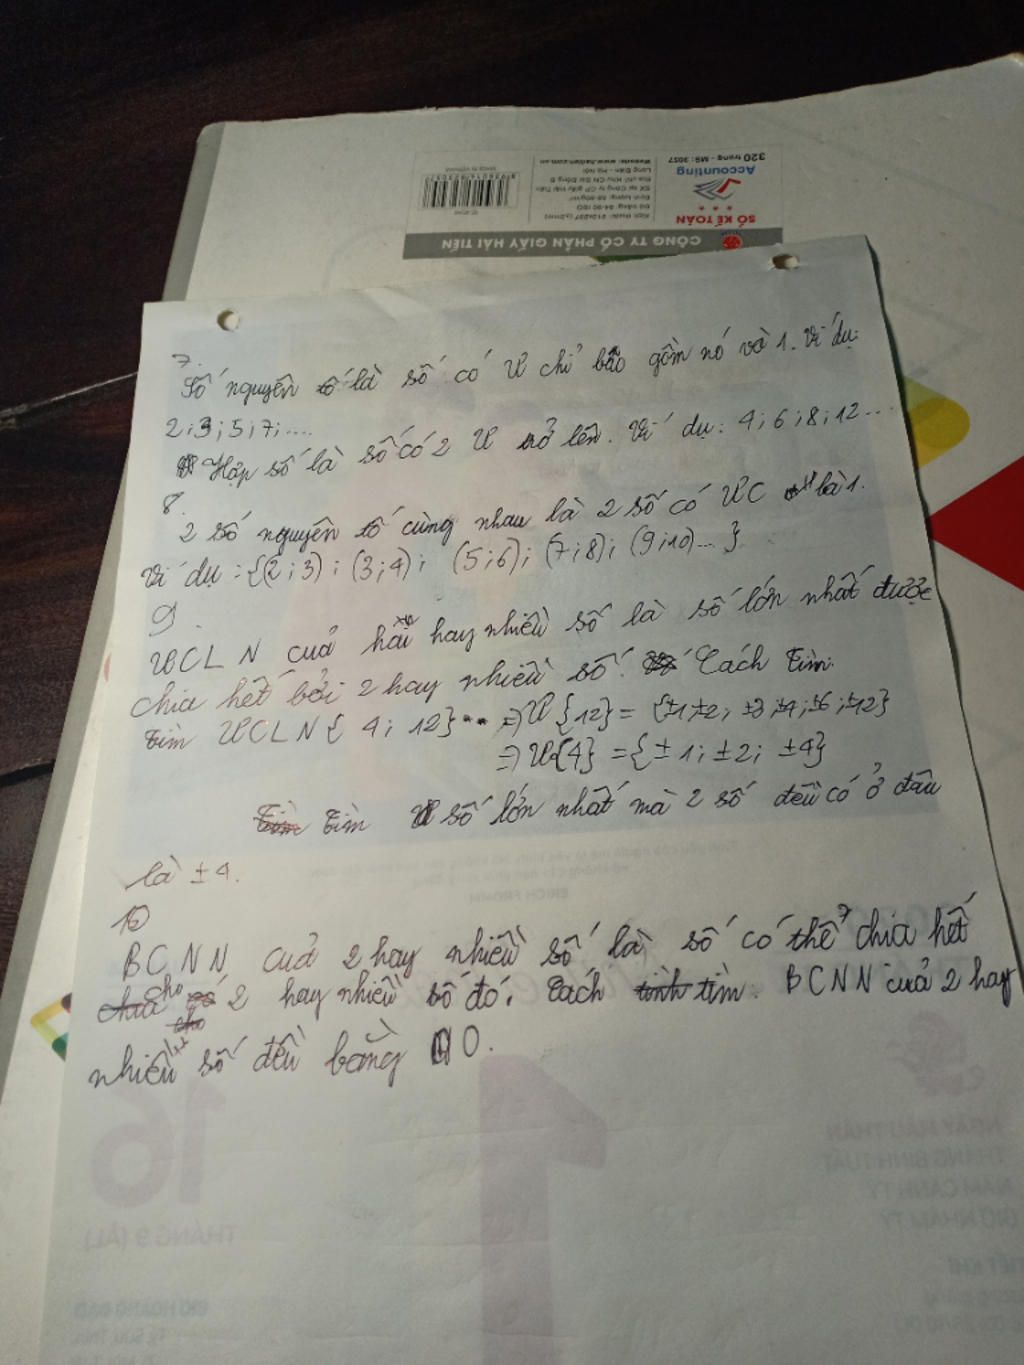 CÔNG TY CỔ PHẦN GIẤY HẢI TIẾN
SỔ KẾ TOÁN
Accounting
320 trang - MS: 3057
7.
Số nguyên tố là số có Ư chỉ bao gồm nó và 1. Ví dụ:
2;3;5;7;....
Hợp số là số có 2 Ư trở lên. Ví dụ: 4;6;8;12...
8.
2 số nguyên tố cùng nhau là 2 số có ƯC là 1.
Ví dụ: {(2;3); (3;4); (5;6); (7;8); (9;10)...}
9.
ƯCLN của hai hay nhiều số là số lớn nhất được
chia hết bởi 2 hay nhiều số. Cách tìm:
tìm ƯCLN{ 4; 12} => Ư{12} = {±1;±2; ±3;±4;±6;±12}
=> Ư{4} = {±1; ±2; ±4}
Tìm tìm số lớn nhất mà 2 số đều có ở đâu
là ±4.
10
BCNN của 2 hay nhiều số là số có thể chia hết
chia cho 2 hay nhiều số đó. Cách tính tìm. BCNN của 2 hay
nhiều số đều bằng 0.
16
THÁNG 9 (ÂL)
1
NGÀY MẬU THÂN
THÁNG BÍNH TUẤT
NĂM CANH TÝ
GIỜ NHÂM TÝ
GIỜ HOÀNG ĐẠO
ERICH FROMM